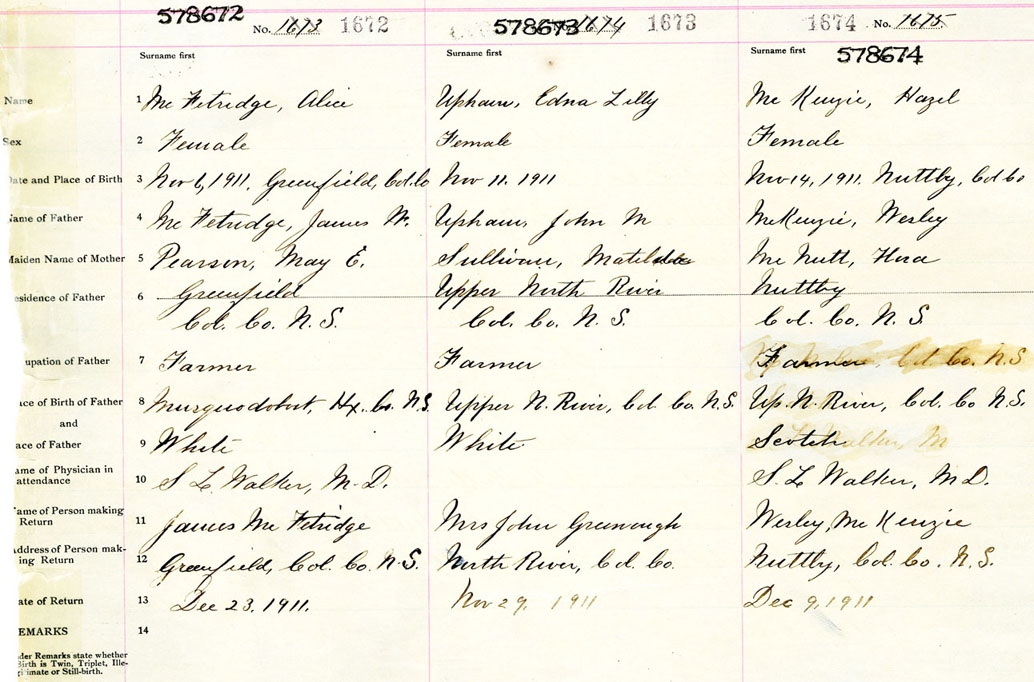 578672 578673 1674
No. 1673 1672 1673 1674 No. 1675
578674
Surname first Surname first Surname first
Name 1 Mc Fetridge, Alice Upham, Edna Lilly Mc Kenzie, Hazel
Sex 2 Female Female Female
Date and Place of Birth 3 Nov 6, 1911, Greenfield, Col. Co Nov 11. 1911 Nov 14, 1911. Nuttby, Col Co
Name of Father 4 Mc Fetridge, James W. Upham, John M McKenzie, Wesley
Maiden Name of Mother 5 Pearson, May E. Sullivan, Matilda Mc Nutt,
esidence of Father 6 Greenfield Upper North River Nuttby
Col. Co. N.S. Col. Co. N.S. Col. Co. N.S.
upation of Father 7 Farmer Farmer Farmer Col. Co. N.S
ace of Birth of Father 8 Musquodobit, Hx. Co. N.S. Upper N. River, Col. Co. N.S. Up. N. River, Col. Co N.S.
and
ace of Father 9 White White Scotch
ame of Physician in
attendance 10 S L Walker, M.D. S. L Walker, M D.
ame of Person making
Return 11 James Mc Fetridge Mrs John Greenough Wesley Mc Kenzie
Address of Person mak-
ing Return 12 Greenfield, Col. Co. N.S. North River, Col. Co. Nuttby, Col. Co. N.S.
ate of Return 13 Dec 23, 1911. Nov 29, 1911 Dec 9, 1911
EMARKS 14
der Remarks state whether
Birth is Twin, Triplet, Ille-
gitimate or Still-birth.